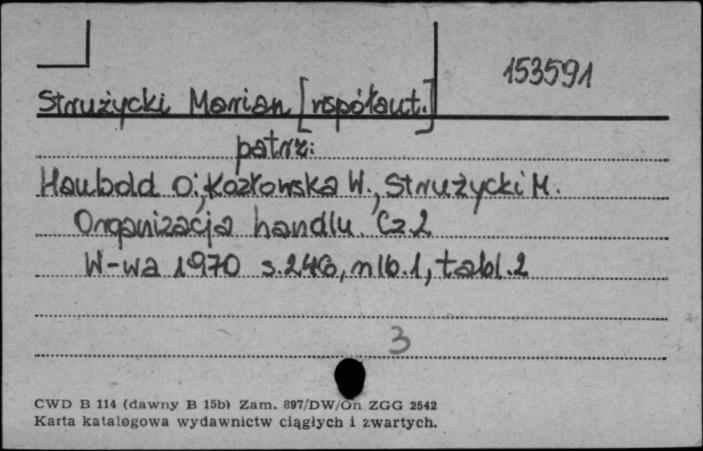 153591
Strużycki Marian [współaut.]
patrz:
Haubold O., Kozłowska W., Strużycki M.
Organizacja handlu. Cz.2
W-wa 1970 s.246, nlb.1, tabl.2
3
CWD B 114 (dawny B 15b) Zam. 897/DW/On ZGG 2542
Karta katalogowa wydawnictw ciągłych i zwartych.